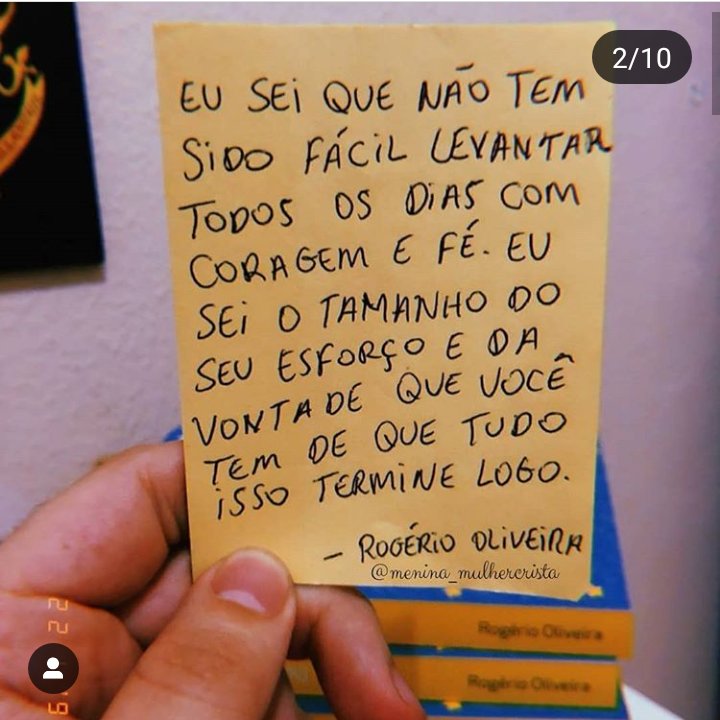 2/10
EU SEI QUE NÃO TEM
SIDO FÁCIL LEVANTAR
TODOS OS DIAS COM
CORAGEM E FÉ. EU
SEI O TAMANHO DO
SEU ESFORÇO E DA
VONTADE QUE VOCÊ
TEM DE QUE TUDO
ISSO TERMINE LOGO.
- ROGÉRIO OLIVEIRA
@menina_mulhercrista
Rogério Oliveira
Rogério Oliveira